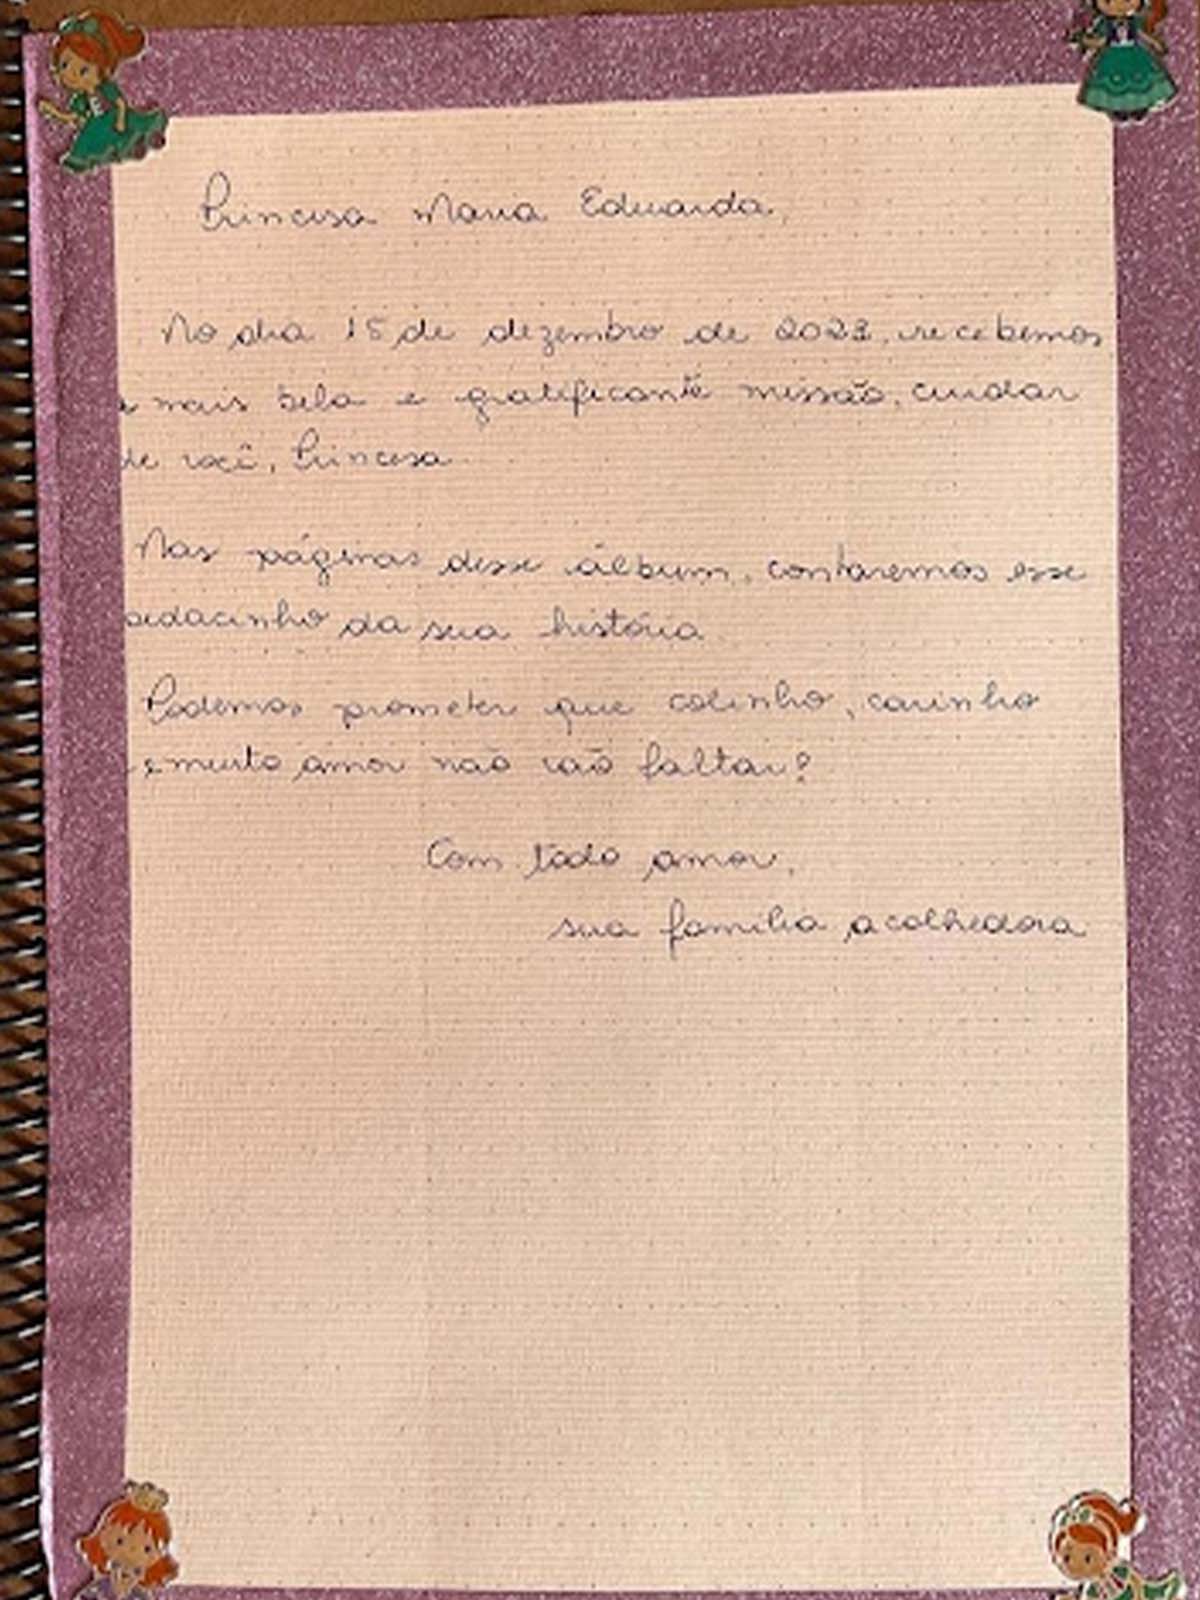 Princesa Maria Eduarda,
No dia 15 de dezembro de 2023, recebemos
a mais bela e gratificante missão, cuidar
de você, Princesa.
Nas páginas desse álbum, contaremos esse
pedacinho da sua história.
Podemos prometer que colinho, carinho
e muito amor não vão faltar?
Com todo amor,
sua família acolhedora